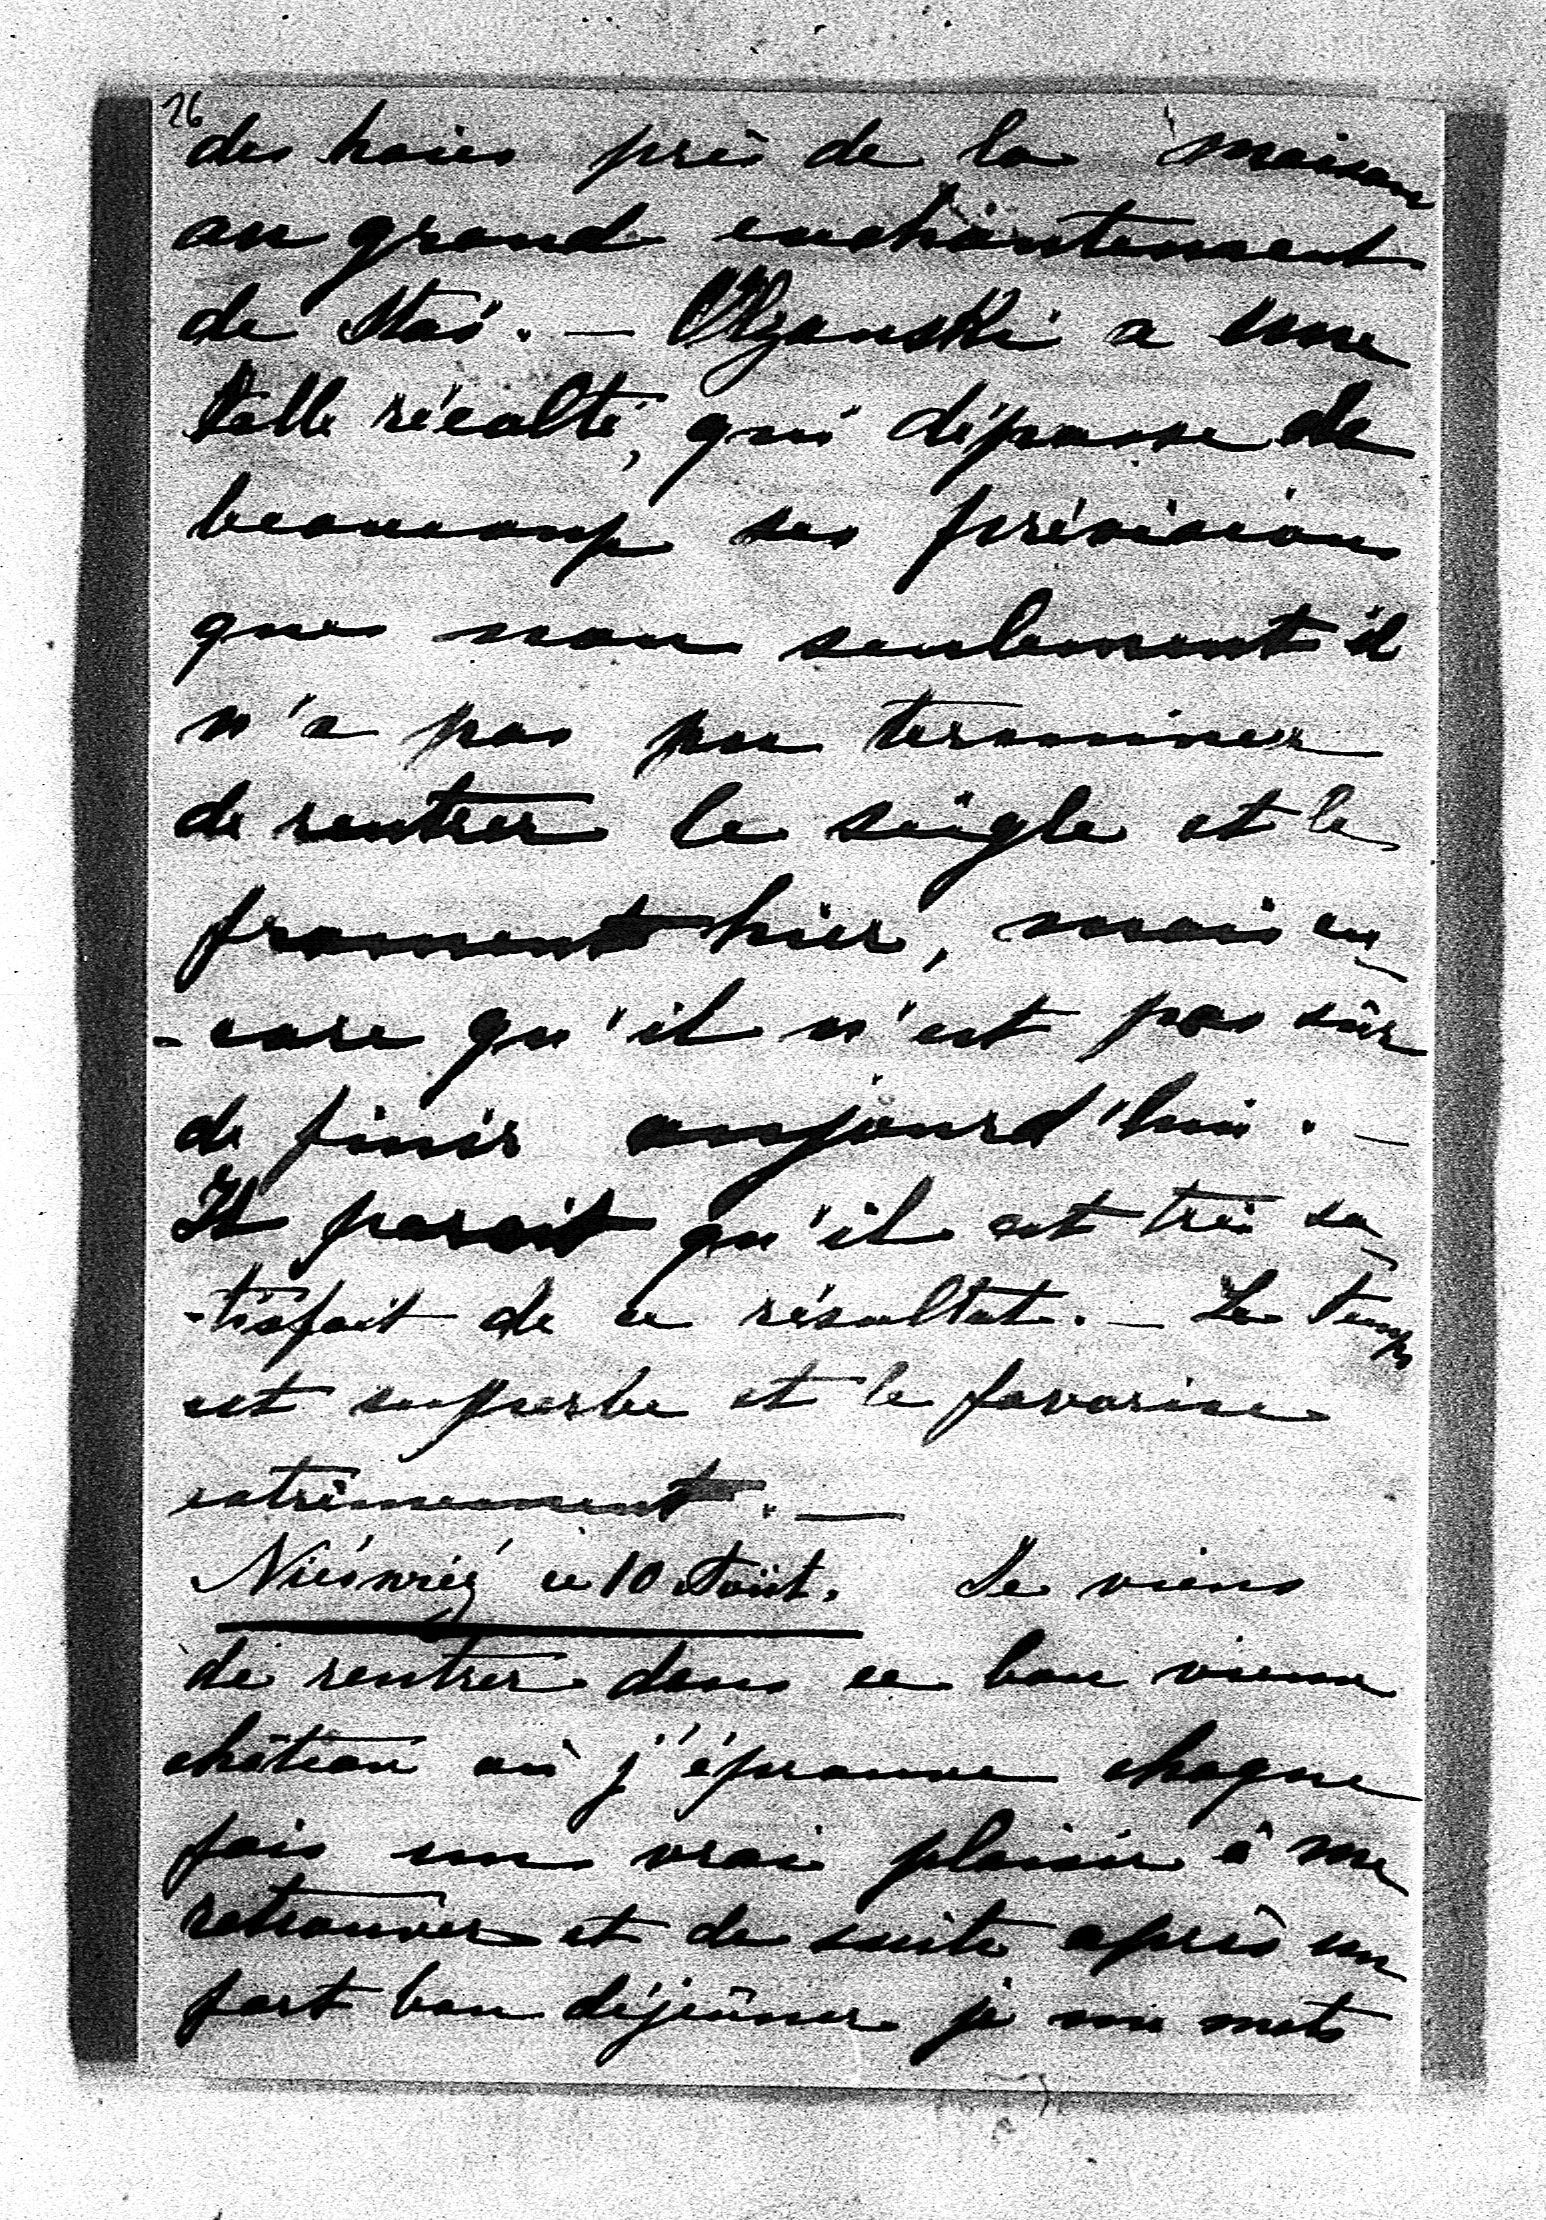 26
des haies près de la maison
au grand enchantement
de Staś. — Olszanski a une
telle récolte, qui dépasse de
beaucoup ses prévisions
que non seulement il
n'a pas pu terminer
de rentrer le seigle et le
froment hier, mais en
-core qu'il n'est pas sûr
de finir aujourd'hui. —
Il parait qu'il est très sa
-tisfait de ce résultat. — Le temps
est superbe et le favorise
extrêmement. —
ce 10 Août. Je viens
de rentrer dans ce bon vieux
château où j'éprouve chaque
fois un vrai plaisir à me
retrouver et de suite après un
fort bon déjeûner je me mets